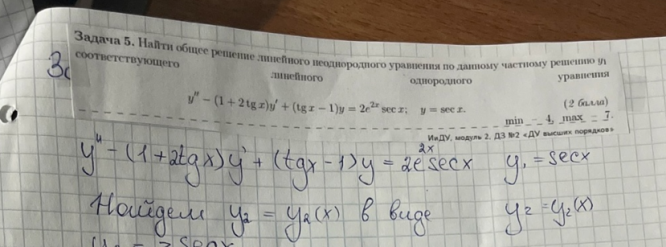 Задача 5. Найти общее решение линейного неоднородного уравнения по данному частному решению y₁
соответствующего линейного однородного уравнения
y″ − (1 + 2 tg x)y′ + (tg x − 1)y = 2e²ˣ sec x; y = sec x. (2 балла)
min − 4, max − 7.
ИиДУ, модуль 2, ДЗ №2 «ДУ высших порядков»
y″ − (1 + 2tgx)y′ + (tgx − 1)y = 2e²ˣsecx y₁ = secx
Найдем y₂ = y₂(x) в виде y₂ = y₂(x)